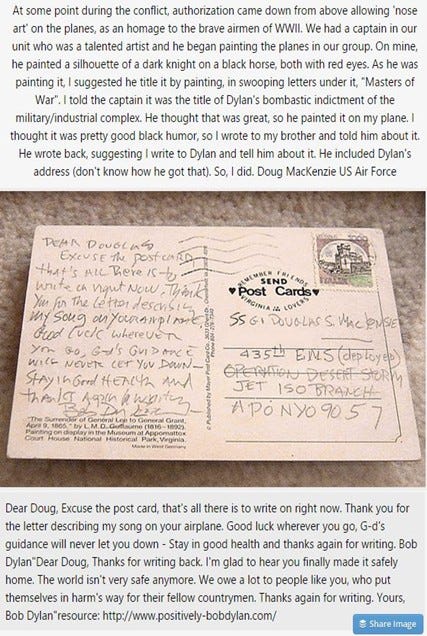 At some point during the conflict, authorization came down from above allowing 'nose
art' on the planes, as an homage to the brave airmen of WWII. We had a captain in our
unit who was a talented artist and he began painting the planes in our group. On mine,
he painted a silhouette of a dark knight on a black horse, both with red eyes. As he was
painting it, I suggested he title it by painting, in swooping letters under it, "Masters of
War". I told the captain it was the title of Dylan's bombastic indictment of the
military/industrial complex. He thought that was great, so he painted it on my plane. I
thought it was pretty good black humor, so I wrote to my brother and told him about it.
He wrote back, suggesting I write to Dylan and tell him about it. He included Dylan's
address (don't know how he got that). So, I did. Doug MacKenzie US Air Force
DEAR DOUGLAS
EXCUSE the POSTCARD
that's ALL There is to
write on right NOW. Thank
You for the Letter describing
my Song on your AIRPLANE.
Good Luck wherever
You Go, G-d's GUIDANCE
will NEVER LET YOU DOWN -
Stay in Good HEALTH AND
thanks Again for writing
Bob Dylan
"The Surrender of General Lee to General Grant,
April 9, 1865," by L.M.D. Guillaume (1816-1892).
Painting on display in the Museum at Appomattox
Court House National Historical Park, Virginia.
Made in West Germany
REMEMBER FRIENDS
SEND
Post Cards
VIRGINIA IS LOVERS
SSGT DOUGLAS S. MacKENSIE
435th EMS (deployed)
OPERATION DESERT STORM
JET ISO BRANCH
APO NY 09057
Dear Doug, Excuse the post card, that's all there is to write on right now. Thank you for
the letter describing my song on your airplane. Good luck wherever you go, G-d's
guidance will never let you down - Stay in good health and thanks again for writing. Bob
Dylan"Dear Doug, Thanks for writing back. I'm glad to hear you finally made it safely
home. The world isn't very safe anymore. We owe a lot to people like you, who put
themselves in harm's way for their fellow countrymen. Thanks again for writing. Yours,
Bob Dylan"resource: http://www.positively-bobdylan.com/
Share Image